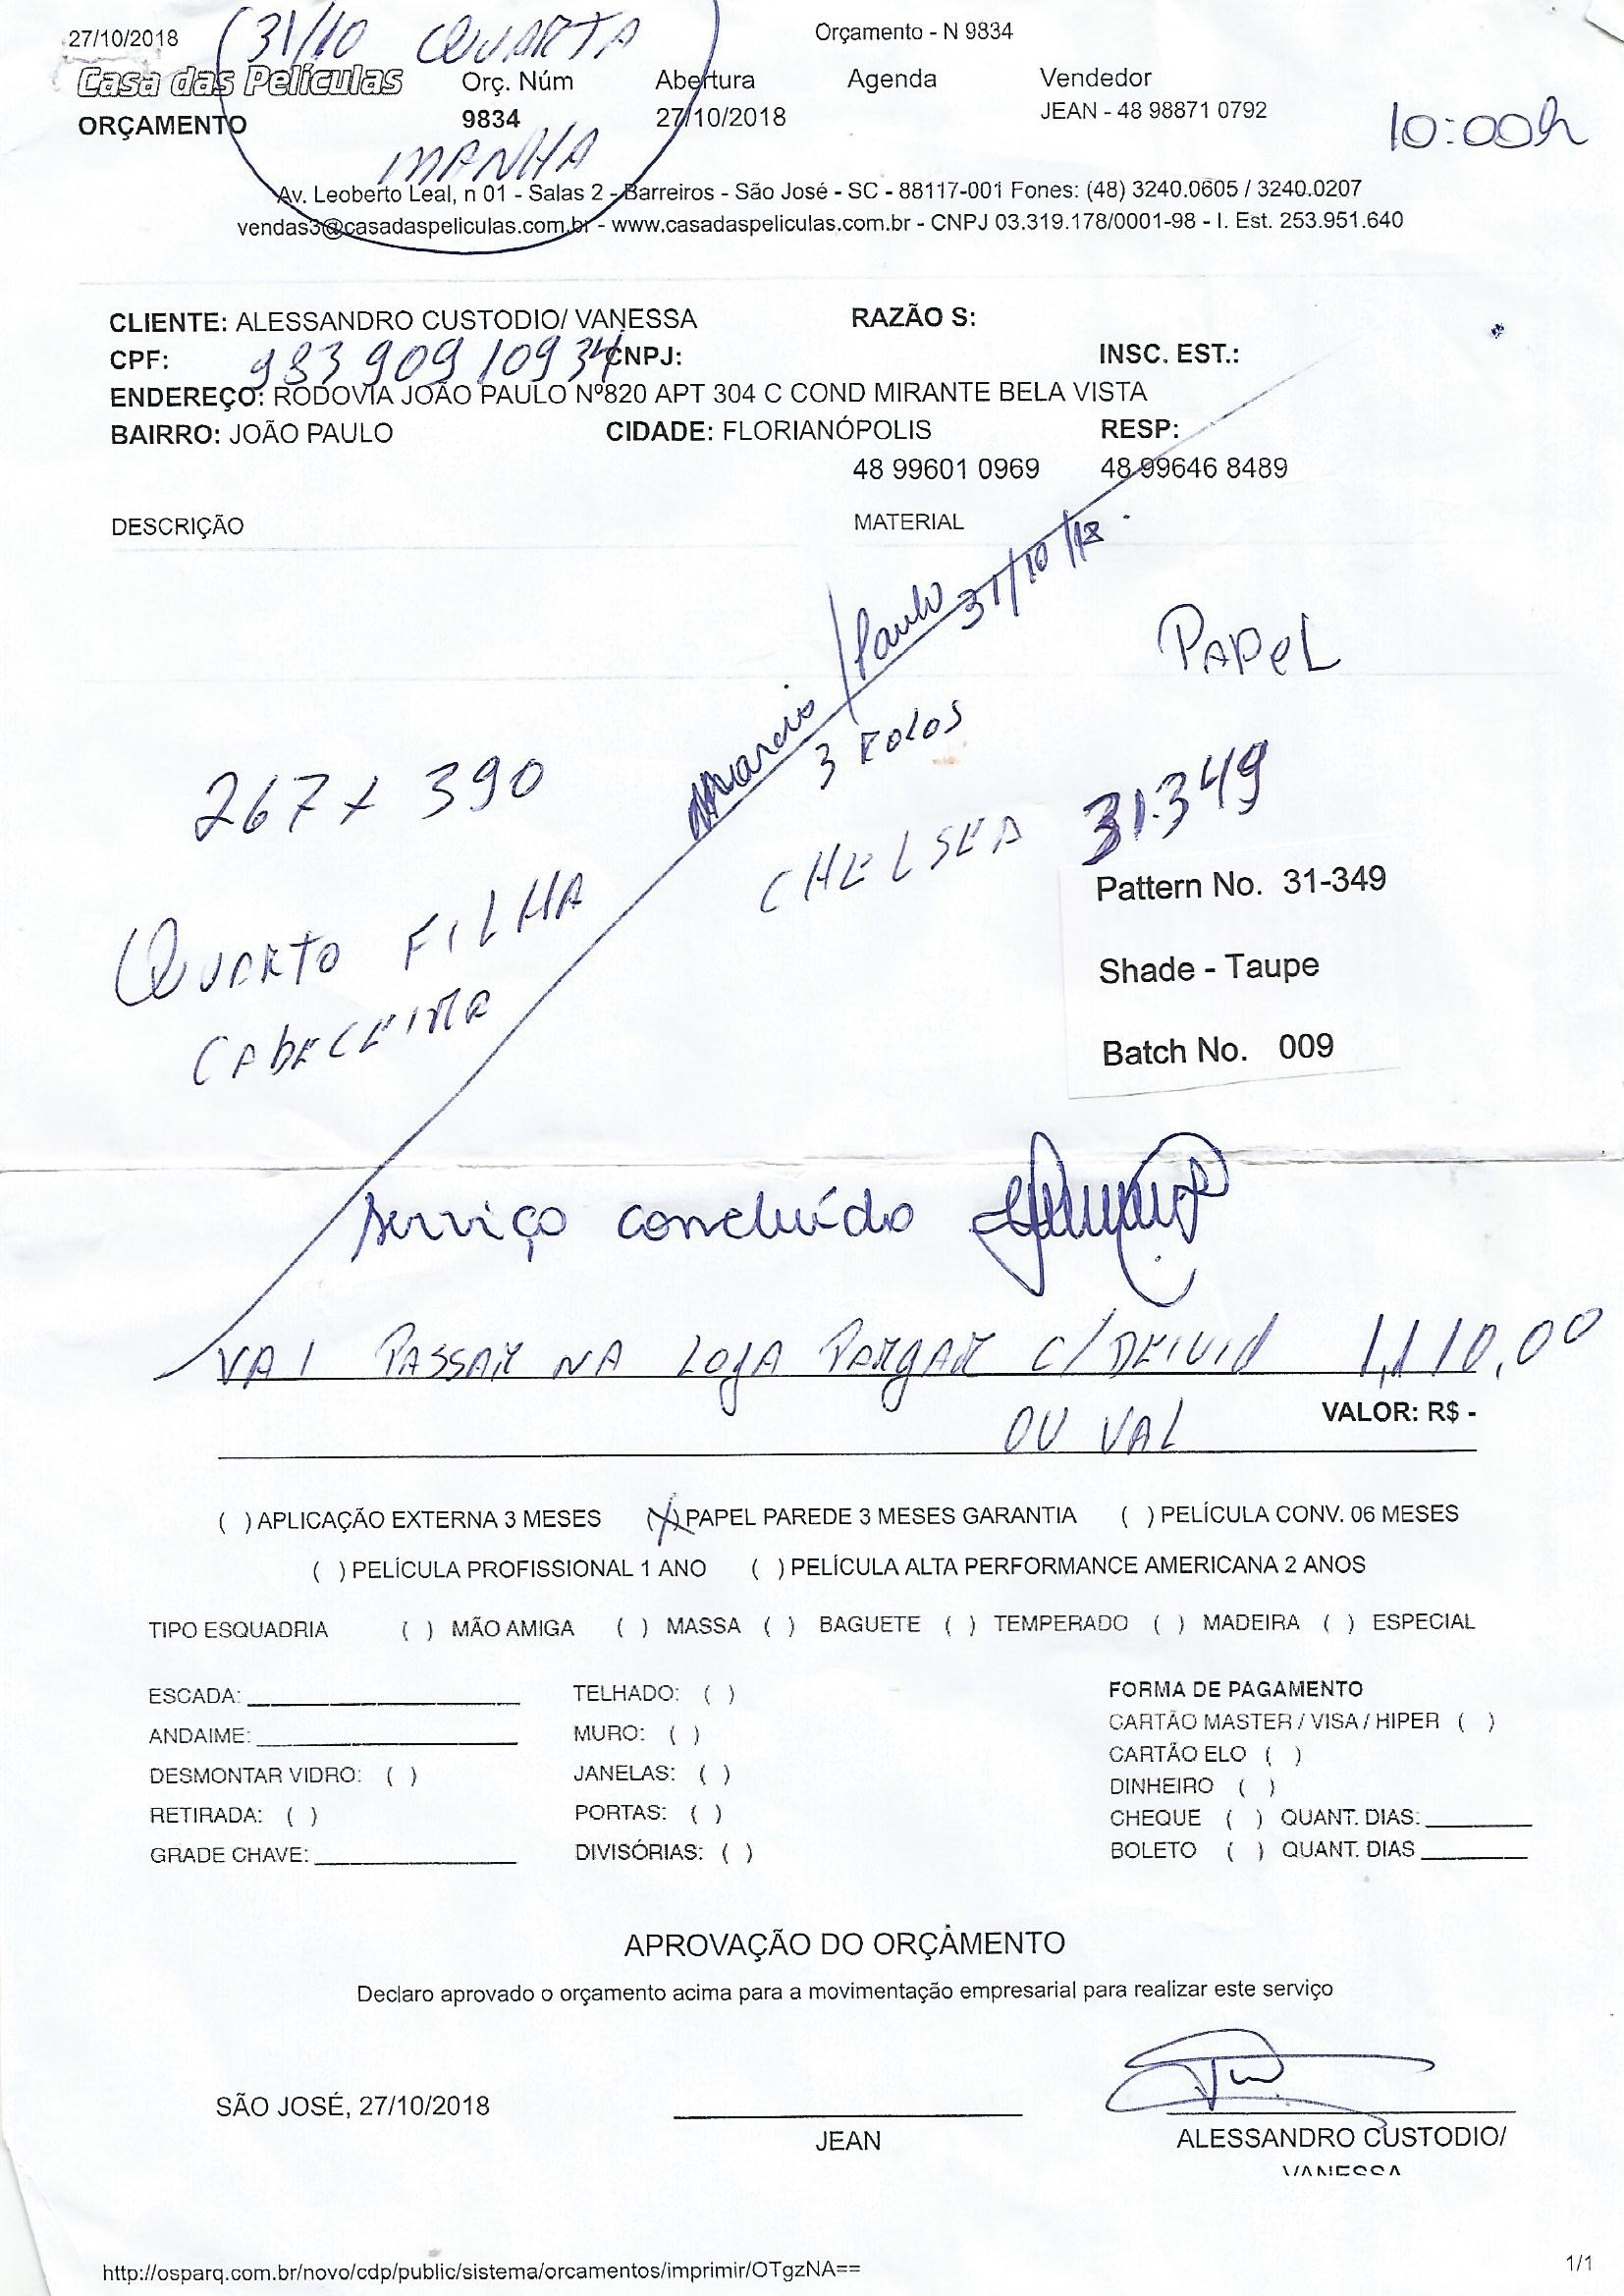 27/10/2018
(31/10 QUARTA
Orçamento - N 9834
Casa das Películas
Orç. Núm
Abertura
Agenda
Vendedor
ORÇAMENTO
9834
27/10/2018
JEAN - 48 98871 0792
10:00h
MANHA
Av. Leoberto Leal, n 01 - Salas 2 - Barreiros - São José - SC - 88117-001 Fones: (48) 3240.0605 / 3240.0207
vendas3@casadaspeliculas.com.br - www.casadaspeliculas.com.br - CNPJ 03.319.178/0001-98 - I. Est. 253.951.640
CLIENTE: ALESSANDRO CUSTODIO/ VANESSA
RAZÃO S:
CPF: 98390910934
CNPJ:
INSC. EST.:
ENDEREÇO: RODOVIA JOÃO PAULO Nº820 APT 304 C COND MIRANTE BELA VISTA
BAIRRO: JOÃO PAULO
CIDADE: FLORIANÓPOLIS
RESP:
48 99601 0969
48 99646 8489
DESCRIÇÃO
MATERIAL
Marcio / Paulo 31/10/18.
PAPeL
267 x 390
3 ROLOS
CHELSEA 31.349
QUARTO FILHA
CABECEIRA
Pattern No. 31-349
Shade - Taupe
Batch No. 009
serviço concluído
VAI PASSAR NA LOJA PARGAR C/ DEIVID 1,110,00
OU VAL
VALOR: R$ -
( ) APLICAÇÃO EXTERNA 3 MESES (X) PAPEL PAREDE 3 MESES GARANTIA ( ) PELÍCULA CONV. 06 MESES
( ) PELÍCULA PROFISSIONAL 1 ANO ( ) PELÍCULA ALTA PERFORMANCE AMERICANA 2 ANOS
TIPO ESQUADRIA ( ) MÃO AMIGA ( ) MASSA ( ) BAGUETE ( ) TEMPERADO ( ) MADEIRA ( ) ESPECIAL
ESCADA:
TELHADO: ( )
FORMA DE PAGAMENTO
ANDAIME:
MURO: ( )
CARTÃO MASTER / VISA / HIPER ( )
DESMONTAR VIDRO: ( )
JANELAS: ( )
CARTÃO ELO ( )
DINHEIRO ( )
RETIRADA: ( )
PORTAS: ( )
CHEQUE ( ) QUANT. DIAS:
GRADE CHAVE:
DIVISÓRIAS: ( )
BOLETO ( ) QUANT. DIAS
APROVAÇÃO DO ORÇAMENTO
Declaro aprovado o orçamento acima para a movimentação empresarial para realizar este serviço
SÃO JOSÉ, 27/10/2018
JEAN
ALESSANDRO CUSTODIO/
VANESSA
http://osparq.com.br/novo/cdp/public/sistema/orcamentos/imprimir/OTgzNA==
1/1